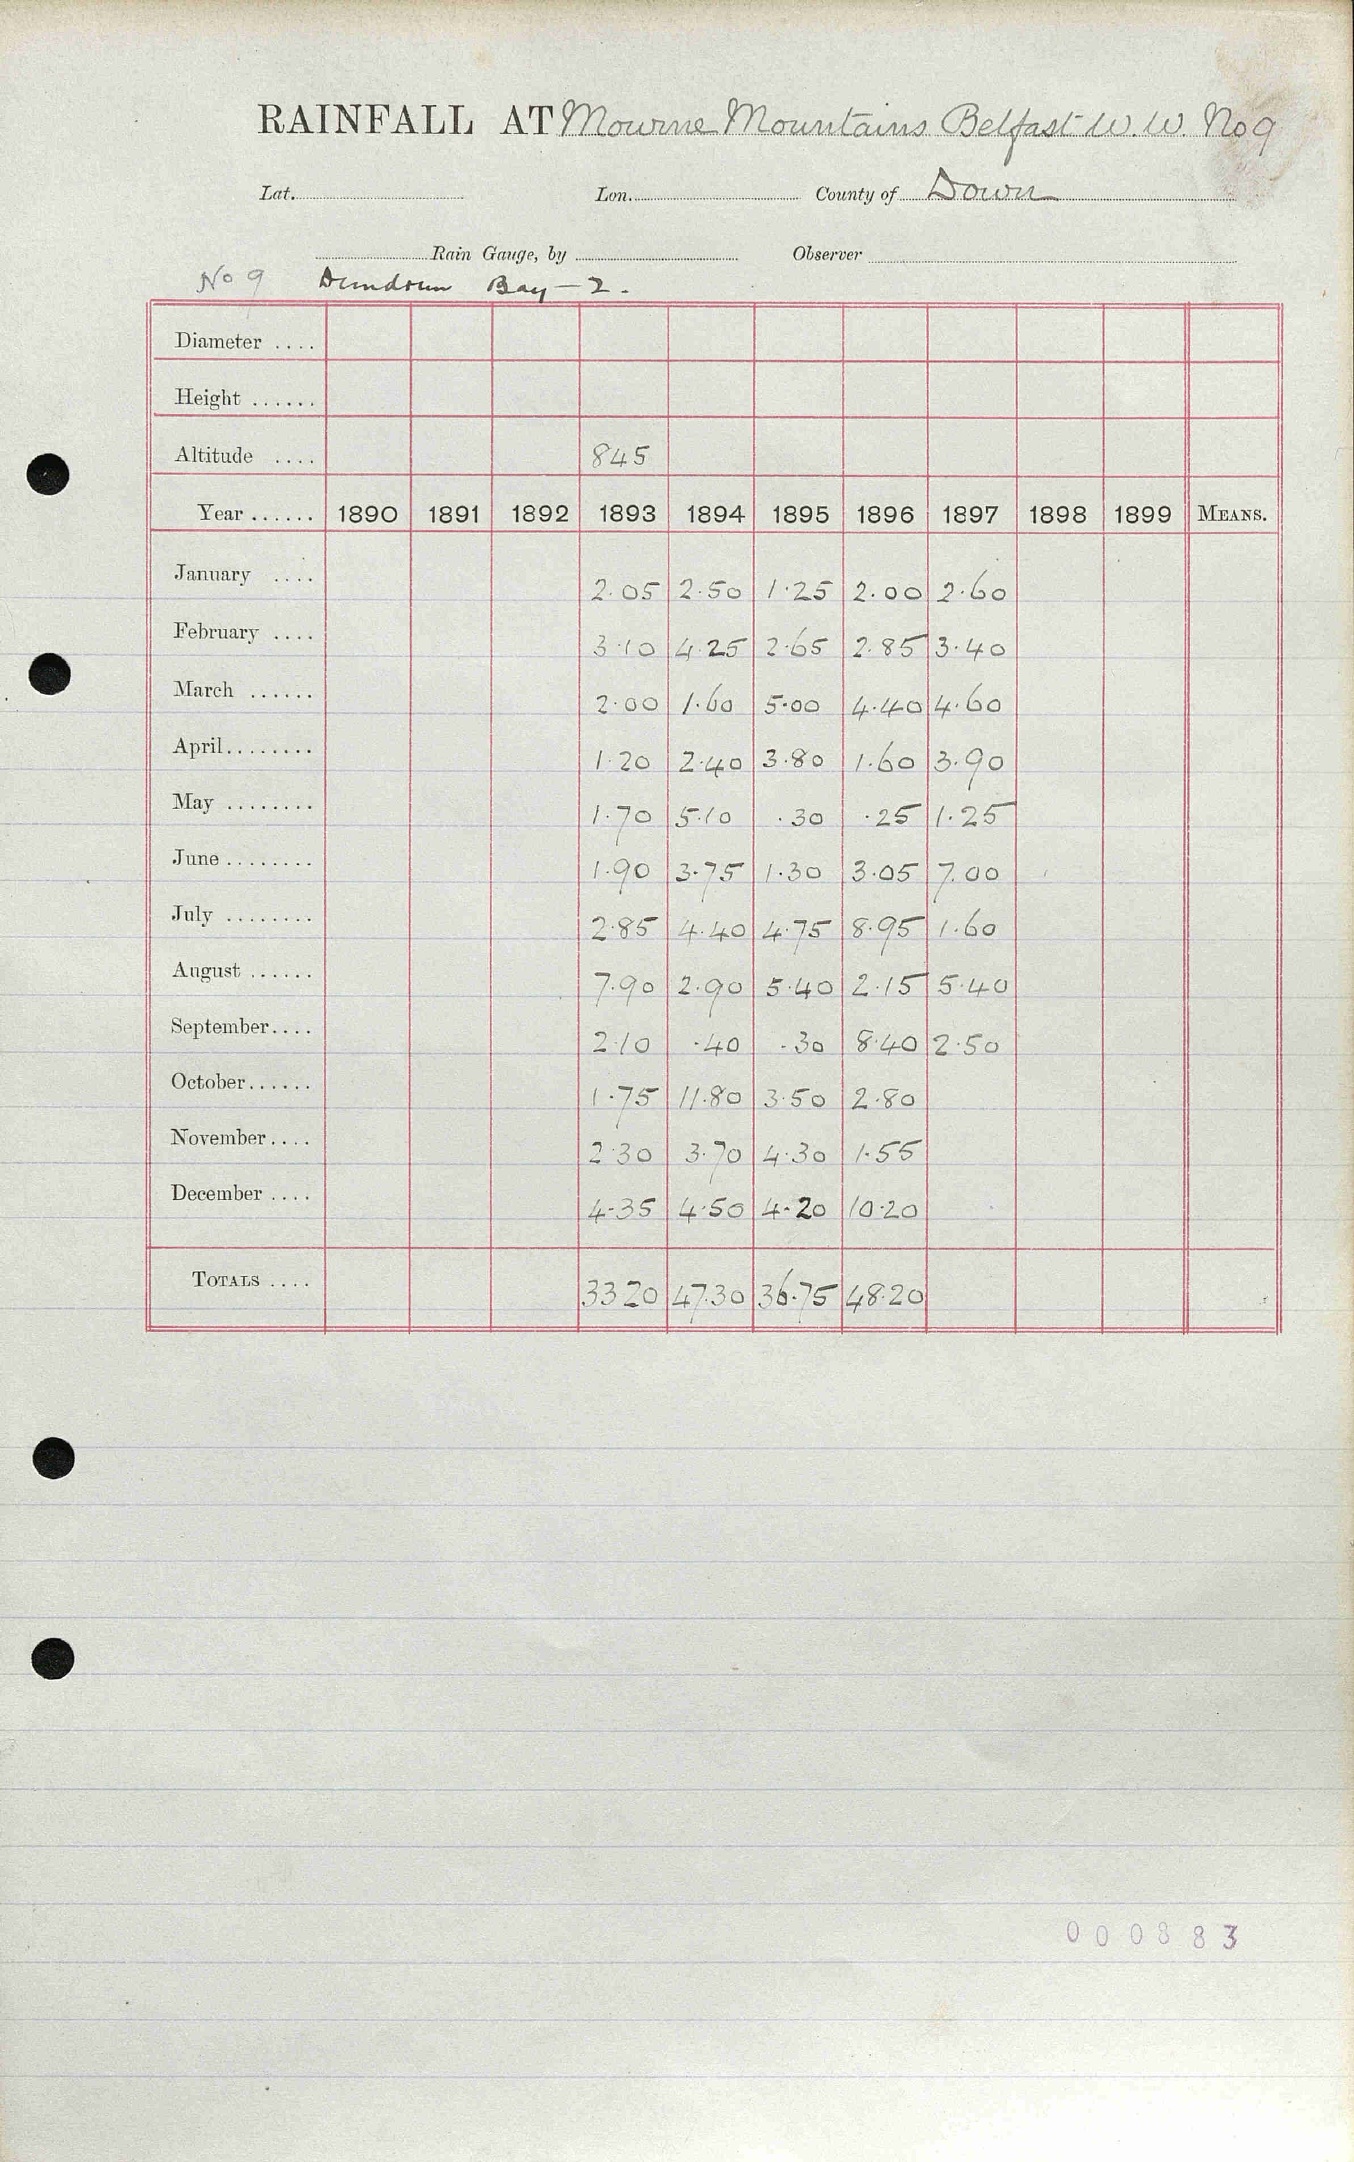 RAINFALL AT Mourne Mountains Belfast W.W. No 9
Lat. Lon. County of Down
Rain Gauge, by Observer
No 9 Dundrum Bay - 2.
Diameter ....
Height ......
Altitude .... 845
Year ...... 1890 1891 1892 1893 1894 1895 1896 1897 1898 1899 MEANS.
January .... 2.05 2.50 1.25 2.00 2.60
February .... 3.10 4.25 2.65 2.85 3.40
March ...... 2.00 1.60 5.00 4.40 4.60
April........ 1.20 2.40 3.80 1.60 3.90
May ........ 1.70 5.10 .30 .25 1.25
June ........ 1.90 3.75 1.30 3.05 7.00
July ........ 2.85 4.40 4.75 8.95 1.60
August ...... 7.90 2.90 5.40 2.15 5.40
September.... 2.10 .40 .30 8.40 2.50
October...... 1.75 11.80 3.50 2.80
November.... 2.30 3.70 4.30 1.55
December .... 4.35 4.50 4.20 10.20
TOTALS .... 33 20 47.30 36.75 48.20
000883